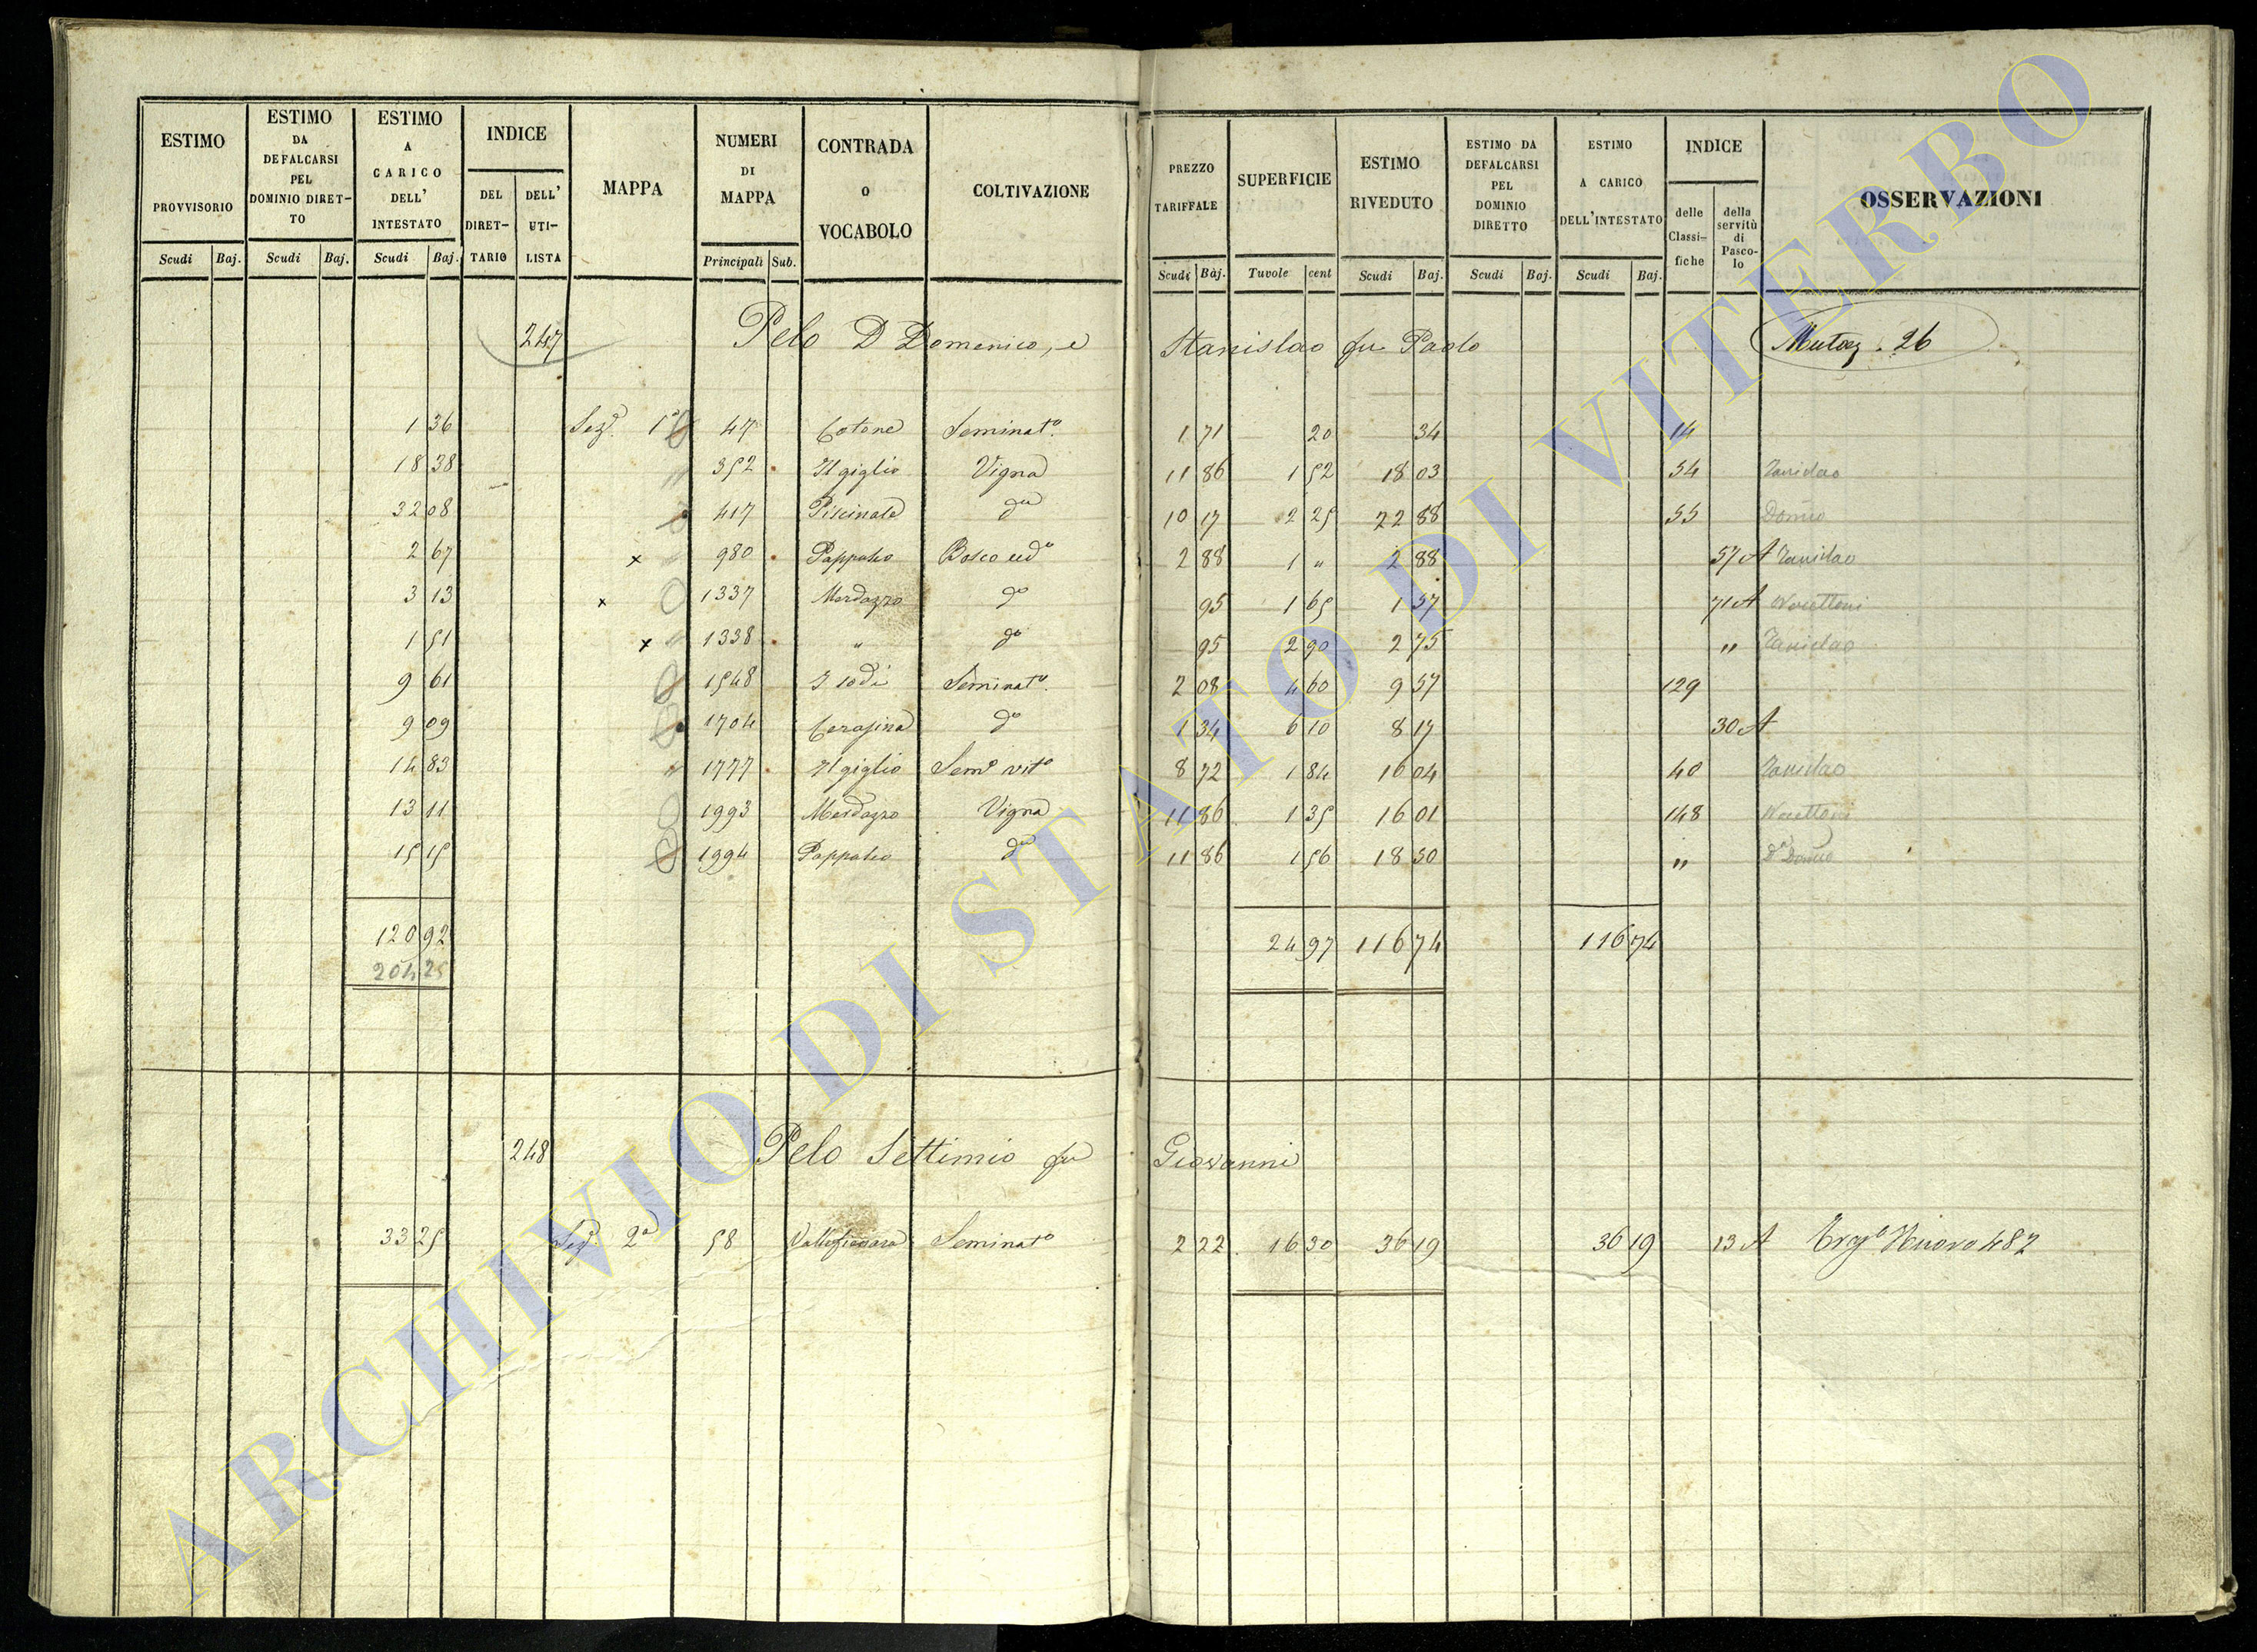 ESTIMO PROVVISORIO
ESTIMO DA DEFALCARSI PEL DOMINIO DIRET-TO
ESTIMO A CARICO DELL' INTESTATO
INDICE
DEL DIRET-TARIO
DELL' UTI-LISTA
MAPPA
NUMERI DI MAPPA
CONTRADA O VOCABOLO
COLTIVAZIONE
PREZZO TARIFFALE
SUPERFICIE
ESTIMO RIVEDUTO
ESTIMO DA DEFALCARSI PEL DOMINIO DIRETTO
ESTIMO A CARICO DELL'INTESTATO
INDICE
delle Classi-fiche
della servitù di Pasco-lo
OSSERVAZIONI
Scudi Baj. Scudi Baj. Scudi Baj. Principali Sub. Scudi Baj. Tavole cent Scudi Baj. Scudi Baj. Scudi Baj.
247 Pelo D Domenico, e Stanislao fu Paolo 26
1 36 Sez. 1ª 47 Cotone Seminat.º 1 71 20 34 14
18 38 352 Il giglio Vigna 11 86 1 52 18 03 54
32 08 417 Piscinale dª 10 17 2 25 22 88 55
2 67 x 980 Bosco cedº 2 88 1 " 2 88 57 A
3 13 x 1337 Merdazzo dº 95 1 65 1 57 71 A
1 51 x 1338 " dº 95 2 90 2 75 "
9 61 1548 Seminat.º 2 08 4 60 9 57 129
9 09 1704 dº 1 34 6 10 8 17 30 A
14 83 " 1777 Il giglio Semº vitº 8 72 1 84 16 04 40
13 11 1993 Merdazzo Vigna 11 86 1 35 16 01 148
15 15 1994 dª 11 86 1 56 18 50 "
120 92 24 97 116 74 116 74
204 25
248 Pelo Settimio fu Giovanni
33 25 Sez. 2ª 58 Seminatº 2 22 16 30 36 19 36 19 13 A Nuovo 487
ARCHIVIO DI STATO DI VITERBO